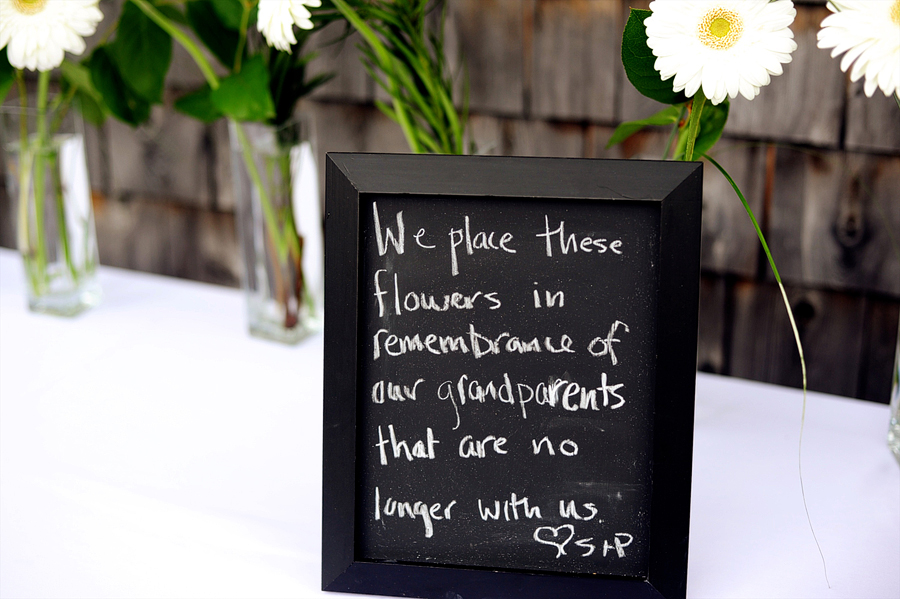 We place these
flowers in
remembrance of
our grandparents
that are no
longer with us.
♡ S+P